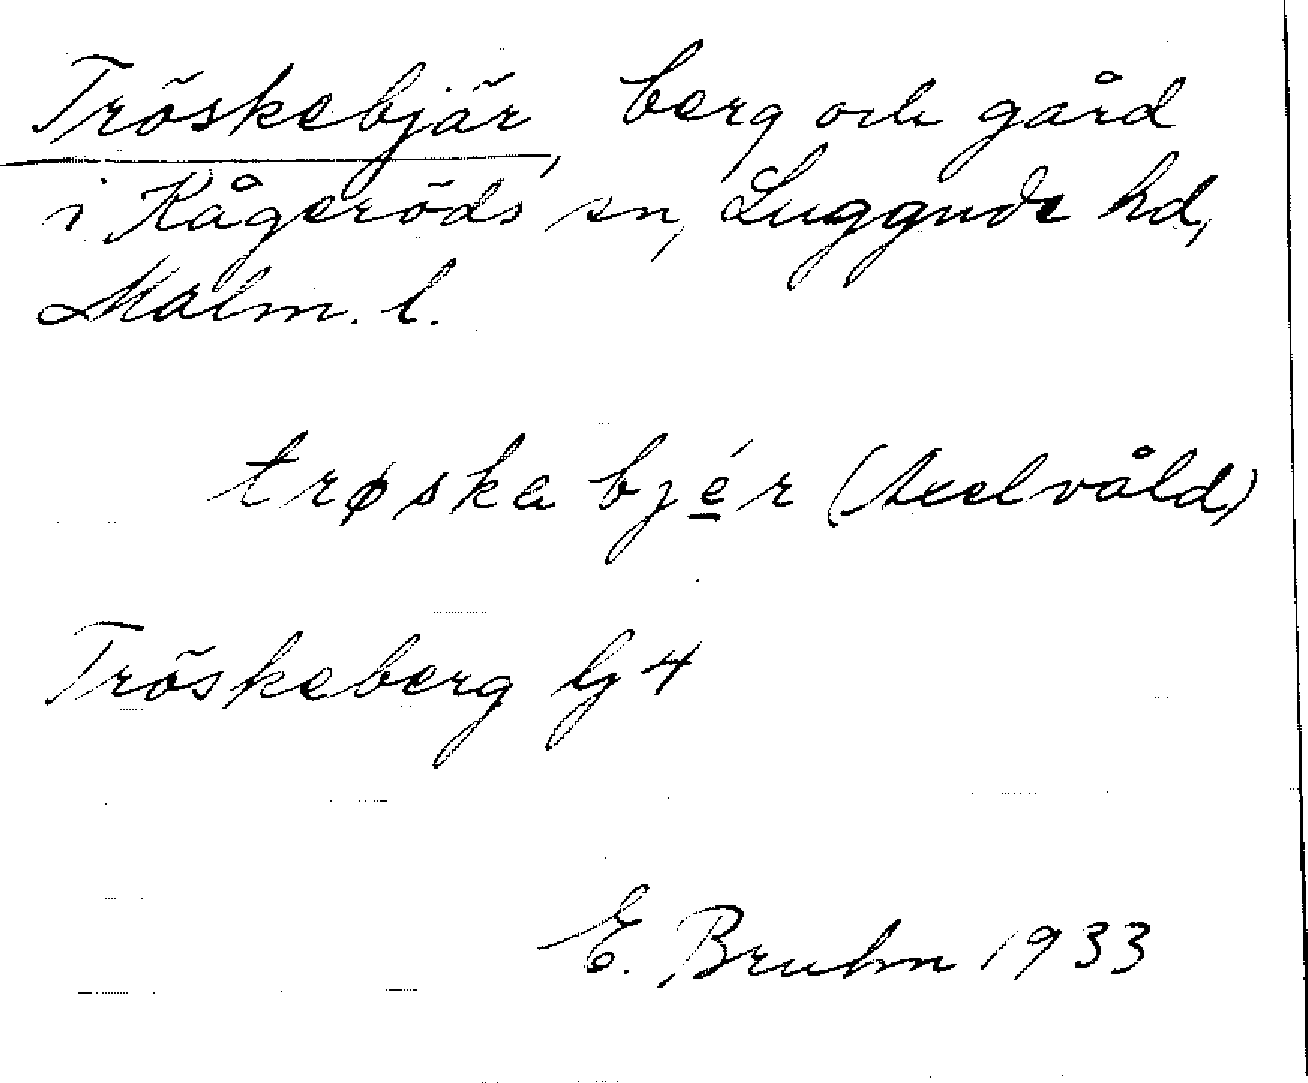 Tröskebjär, berg och gård
i Kågeröds sn, Luggude hd,
Malm. l.
trøska bjér (Axelvåld)
Tröskeberg bg 4
E. Bruhn 1933